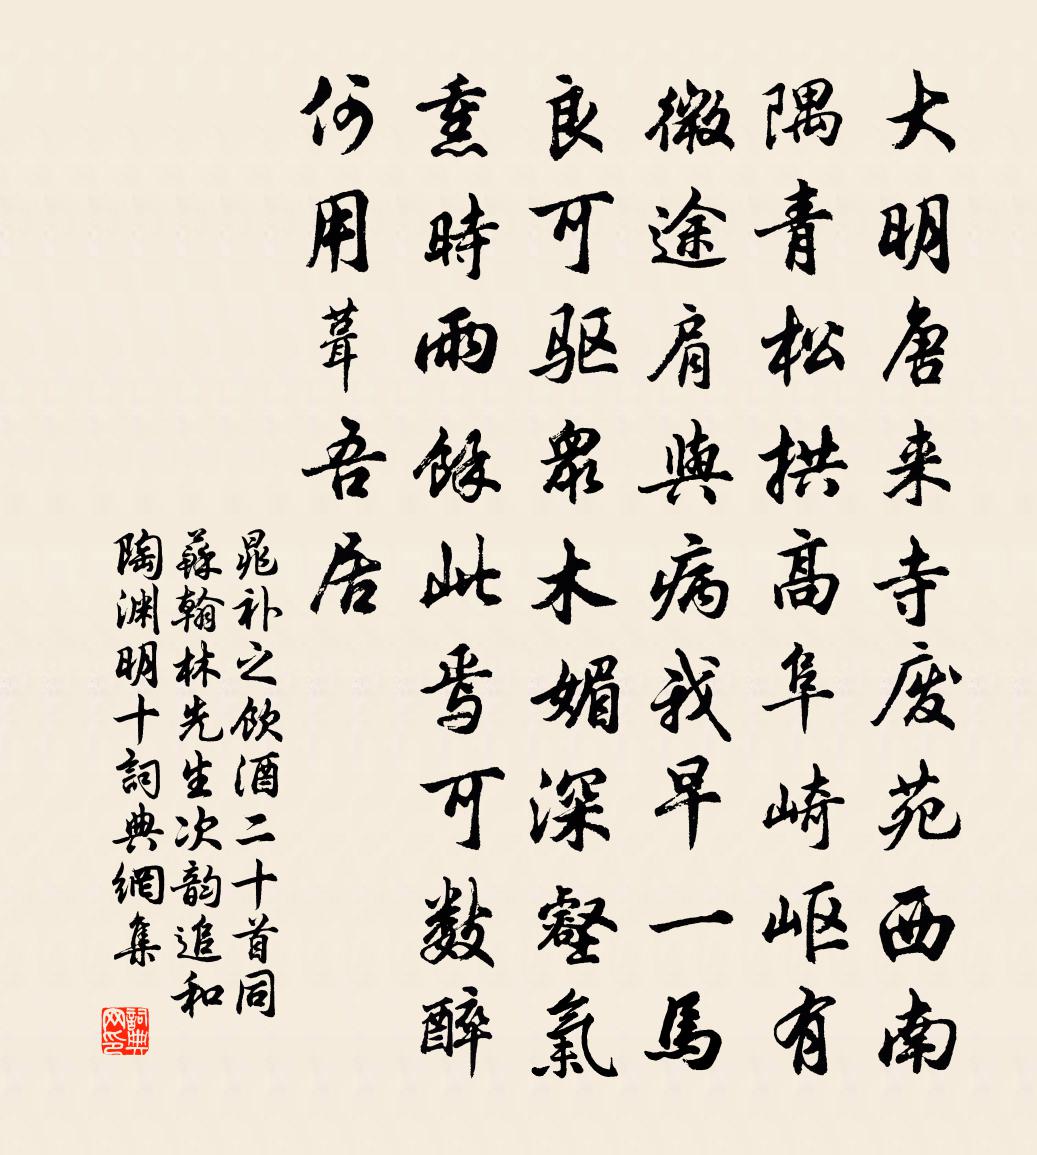 大明唐来寺废苑西南
隅青松拱高阜崎岖有
微途肩與病我早一馬
良可驱眾木媚深壑氣
熏時雨餘此焉可数醉
何用葺吾居
晁补之飲酒二十首同
蘇翰林先生次韵追和
陶渊明十詞典網集
詞典网印